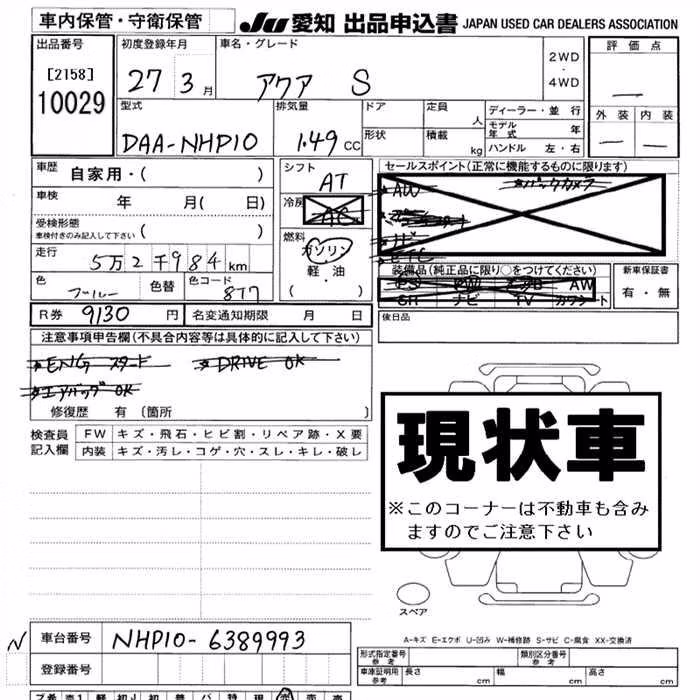 車内保管・守衛保管 JU 愛知 出品申込書 JAPAN USED CAR DEALERS ASSOCIATION
出品番号 初度登録年月 車名・グレード 評価点
[2158] 10029
27 3月 アクア S 2WD・4WD
外装 内装
型式 排気量 ドア 定員 人 ディーラー・並行
モデル年式 年
DAA-NHP10 1.49 CC 形状 積載 kg ハンドル 左・右
車歴 自家用・( )
シフト AT
セールスポイント(正常に機能するものに限ります)
車検 年 月( 日)
冷房 AC
AW バックカメラ
ナビ
ETC
受検形態
車検付きのみ記入して下さい ( )
燃料 ガソリン
軽・油
( ・ )
走行 5万2千984km
装備品(純正品に限り○をつけてください) 新車保証書
PS PW エアB AW 有・無
SR ナビ TV カワシート
色 ブルー 色替 色コード 8T7
R券 9130 円 名変通知期限 月 日
後日品
注意事項申告欄(不具合内容等は具体的に記入して下さい)
ENG スタート DRIVE OK
エアバッグ OK
修復歴 有 〔箇所 〕
検査員記入欄 FW キズ・飛石・ヒビ割・リペア跡・X要
内装 キズ・汚レ・コゲ・穴・スレ・キレ・破レ
現状車
※このコーナーは不動車も含み
ますのでご注意下さい
スペア
A-キズ E-エクボ U-凹み W-補修跡 S-サビ C-腐食 XX-交換済
N 車台番号 NHP10-6389993
登録番号
形式指定番号 参考 類別区分番号 参考
車庫証明用 参考 長さ cm 幅 cm 高さ cm